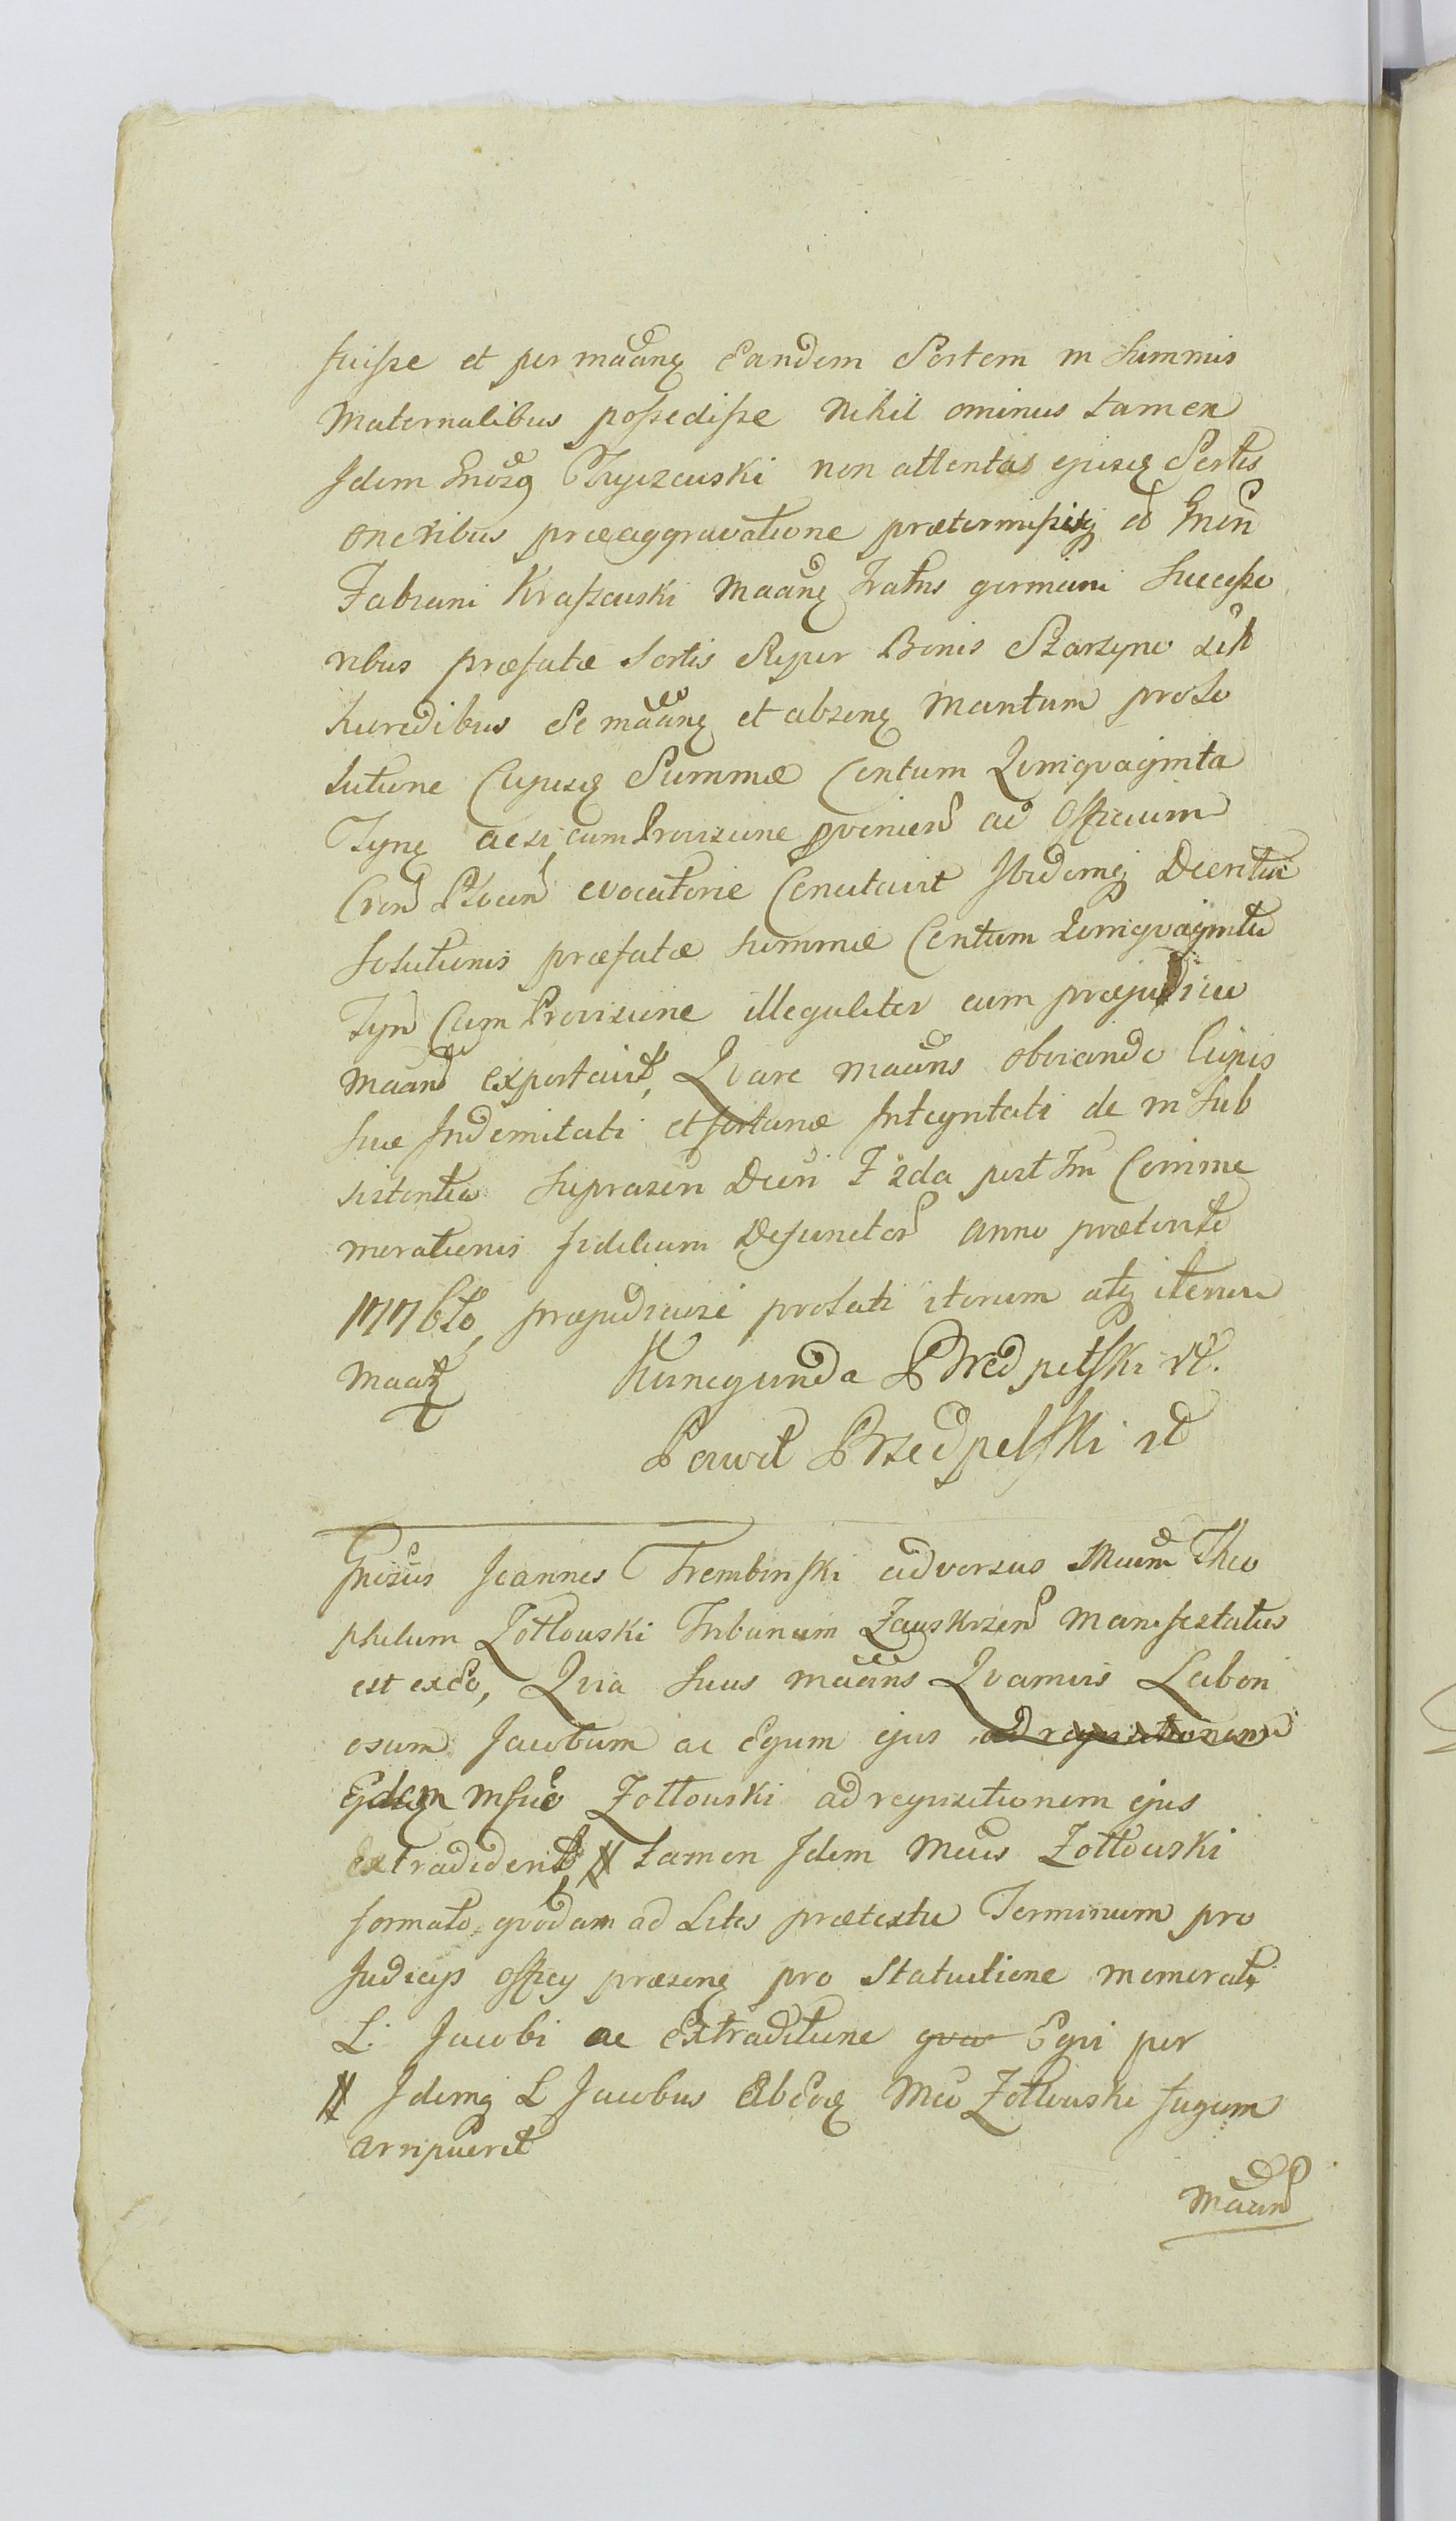 fuisse et per maãnẽ Eandem Sortem in Summis
Maternalibus possedisse Nihil ominus tamen
Idem Gnosq Chyczewski non attenta ejusq Sortis
oneribus præaggravatione prætermissisq
Fabiani Kraszewski Maanẽ Fratris germani Successo
ribus præfatæ Sortis Super Bonis Skarzyno
hæredibus Se maãnẽ et absenẽ Maritum pro So
lutione Cujusq Summæ Centum Qvinqvaginta
Tynẽ ac si cum Provisione provenien ad Officium
Cren Plocen evocatorie Concitavit Ibidemq Decretu
Solutionis præfatæ Summæ Centum Qvinqvaginta
Tyn Cum Provisione illegaliter cum præjudicio
Maan exportavit, Qvare maãns obviando Cujus
suæ Indemnitati et fortunæ Integritati de in sub
sistentia Suprascri Decri F 2da post Fm Comme
morationis fidelium Defunctor Anno præterito
1776to, præjudiciosi prolati iterum atq iterum
Maatẽ Kunegunda P Bredpelski
Paweł Przedpelski
Gnosus Joannes Trembinski adversus Mcum Theo
philum Zołtowski Tribunum Zawskrzen Manifestatus
est exEo, Qvia Suus maãns Qvamvis Labori
osum Jacobum ac Eqvum ejus ad reqvisitionem
Ejdem Mfico Zołtowski ad reqvisitionem ejus
Extradiderit, # tamen Idem Mcus Zołtowski
formato qvodam ad Lites prætextu Terminum pro
Judicijs officij præsenẽ pro Statuitione memorati
L. Jacobi ac Extraditione qvo Eqvi per
# Idemq L Jacobus AbEoq Mco Zołtowski fugam
arripuerit
Maan